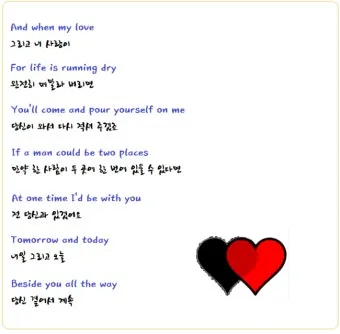 And when my love
그리고 내 사랑이
For life is running dry
완전히 메말라 버리면
You'll come and pour yourself on me
당신이 와서 다시 적셔 주겠죠
If a man could be two places
만약 한 사람이 두 곳에 한 번에 있을 수 있다면
At one time I'd be with you
전 당신과 있겠어요
Tomorrow and today
내일 그리고 오늘
Beside you all the way
당신 곁에서 계속